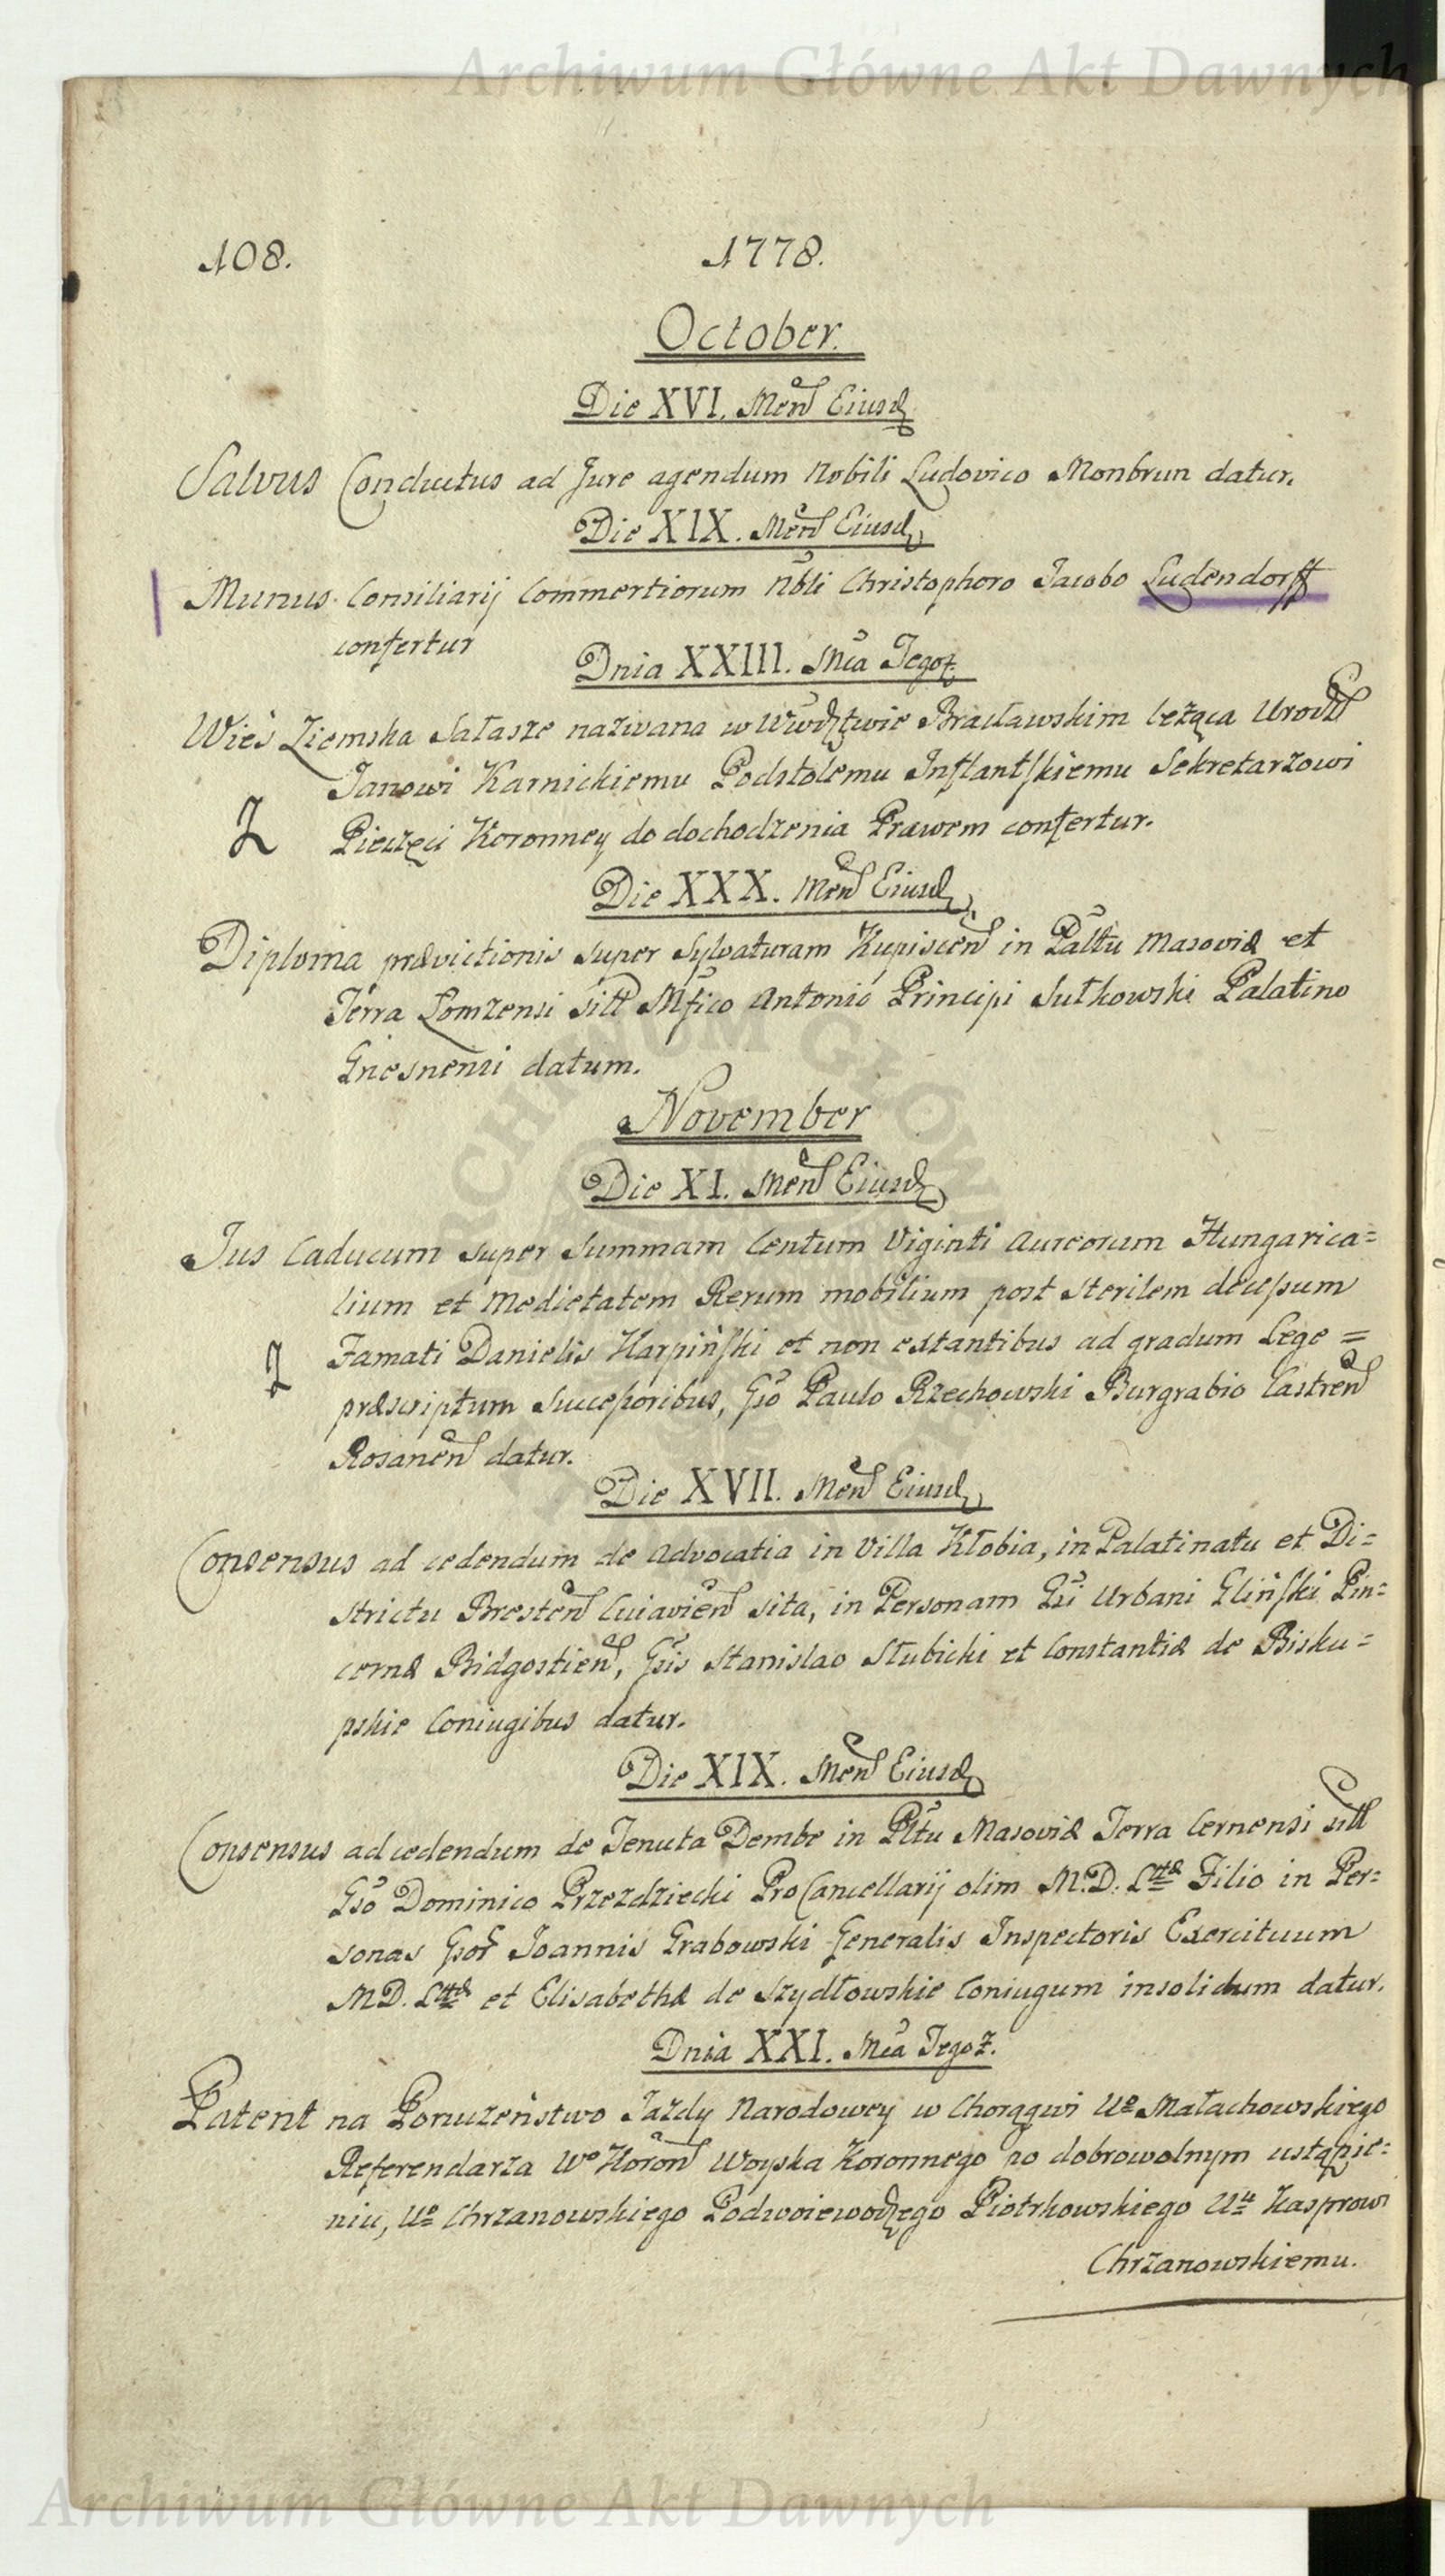 Archiwum Główne Akt Dawnych
108.
1778.
October.
Die XVI. Men Eiusd
Salvus Conductus ad Jure agendum Nobili Ludovico Monbrun datur.
Die XIX. Men Eiusd
Munus Consiliarij Commertiorum Nbli Christophoro Jacobo Ludendorff
confertur
Dnia XXIII. Mca Tegoż
Wieś Ziemska Sałasze nazwana w Wwdztwie Bracławskim leżąca Urodz
Janowi Karnickiemu Podstolemu Inflantskiemu Sekretarzowi
Pieczęci Koronney do dochodzenia Prawem confertur.
Die XXX. Men Eiusd
Diploma prævictionis super Sylvaturam Kupiscen in Palttu Masoviæ et
Terra Lomzensi sitt Mfico Antonio Principi Sułkowski Palatino
Gnesnensi datum.
November
Die XI. Men Eiusd
Jus Caducum super Summam Centum Viginti Aureorum Hungarica=
lium et Medietatem Rerum mobilium post sterilem decessum
Famati Danielis Karpiński et non extantibus ad gradum Lege =
præscriptum Successoribus, Gso Paulo Rzechowski Burgrabio Castren
Rosanen datur.
Die XVII. Men Eiusd
Consensus ad cedendum de Advocatia in Villa Kłobia, in Palatinatu et Di=
strictu Bresten Cuiavien sita, in Personam Gsi Urbani Gliński Pin=
cernæ Bidgostien, Gsis Stanislao Słubicki et Constantiæ de Bisku=
pskie Coniugibus datur.
Die XIX. Men Eiusd
Consensus ad cedendum de Tenuta Dembe in Pltu Masoviæ Terra Cernensi sitt
Gso Dominico Przezdziecki ProCancellarij olim M.D. Lttæ Filio in Per=
sonas Gsor Joannis Grabowski Generalis Inspectoris Exercituum
MD. Lttæ et Elisabethæ de Szydłowskie Coniugum insolidum datur.
Dnia XXI. Mca Tegoż.
Patent na Porucżeństwo Jazdy Narodowey w Chorągwi Uo Małachowskiego
Referendarza Wo Koron Woyska Koronnego po dobrowolnym ustąpie=
niu, Uo Chrzanowskiego Podwoiewodzego Piotrkowskiego Uu Kasprowi
Chrzanowskiemu.
Archiwum Główne Akt Dawnych